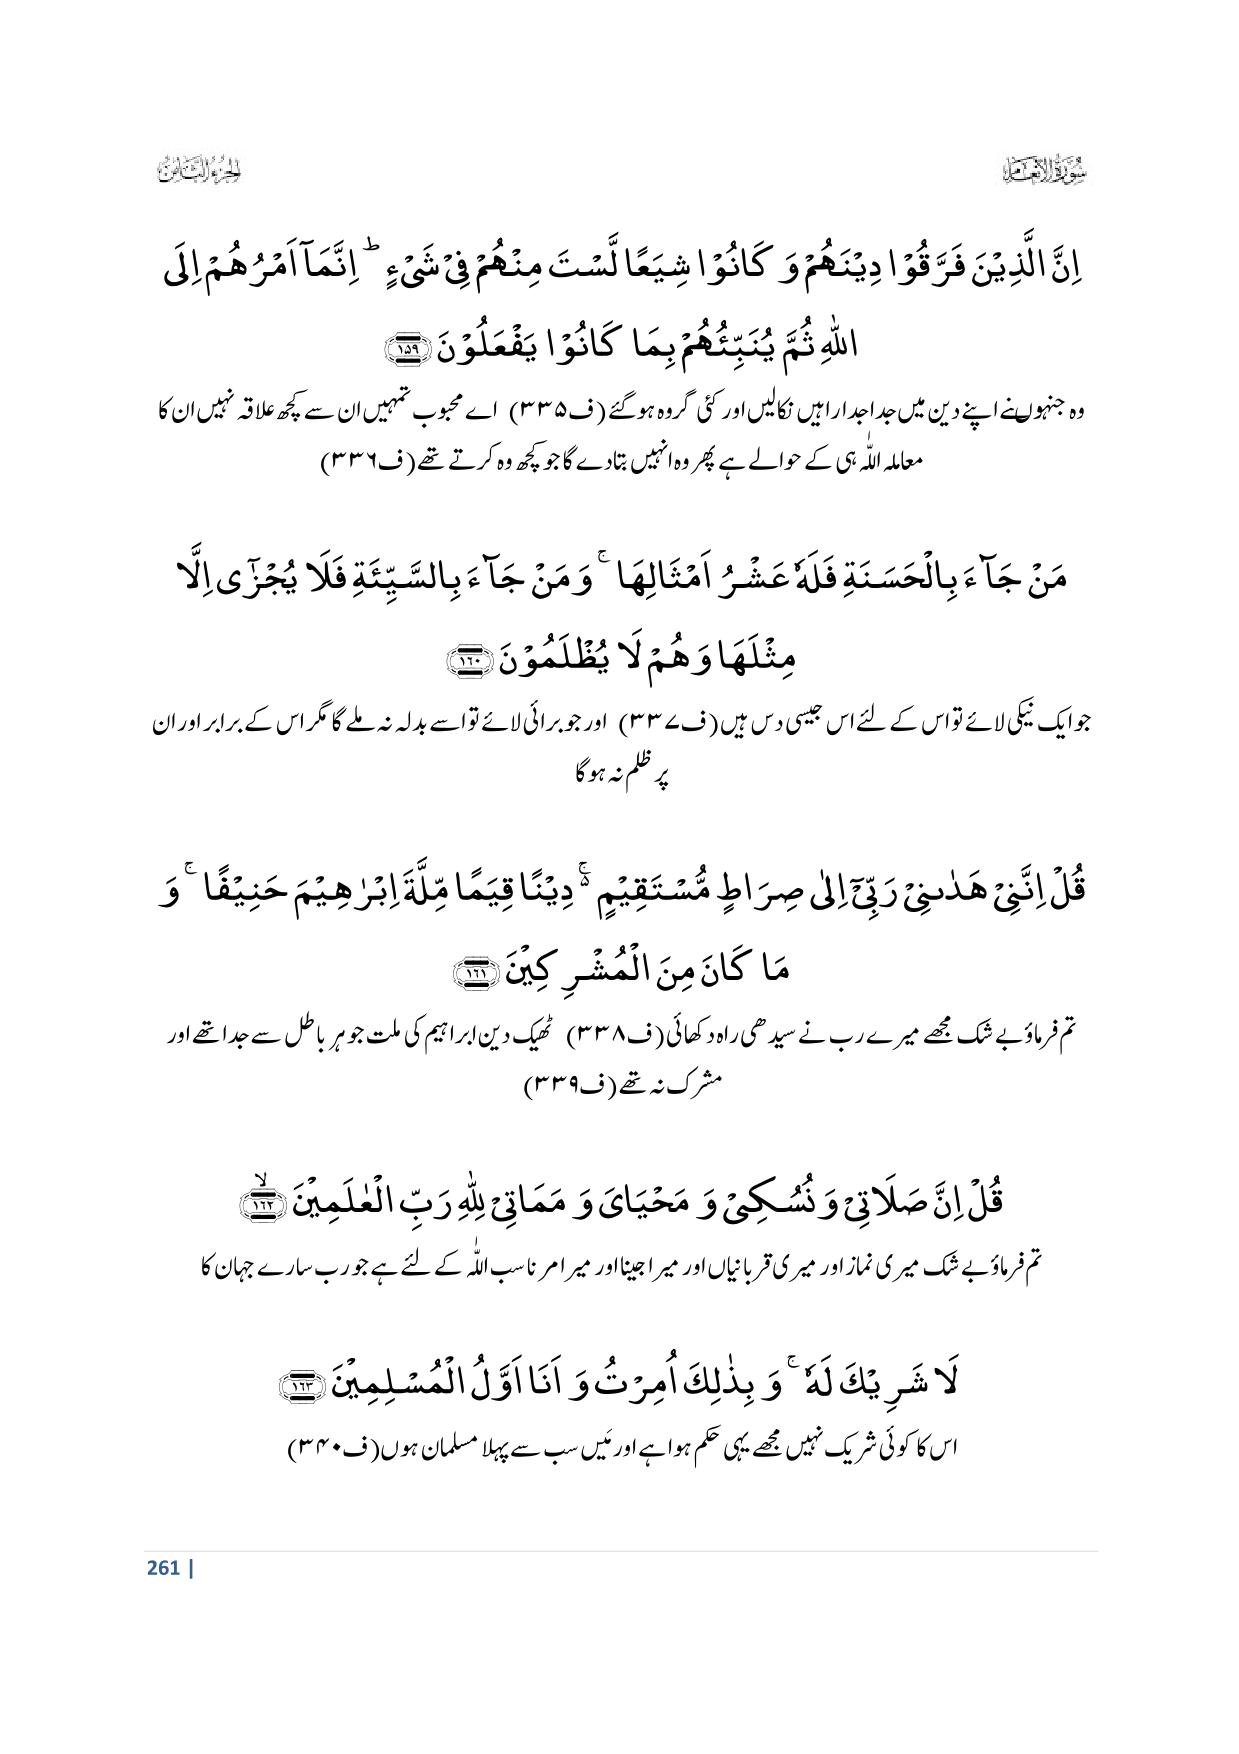 سُوْرَۃُ الْاَنْعَام
اَلْجُزْءُ الثَّامِنُ
اِنَّ الَّذِیْنَ فَرَّقُوْا دِیْنَهُمْ وَ كَانُوْا شِیَعًا لَّسْتَ مِنْهُمْ فِیْ شَیْءٍ ؕ اِنَّمَاۤ اَمْرُهُمْ اِلَى
اللّٰهِ ثُمَّ یُنَبِّئُهُمْ بِمَا كَانُوْا یَفْعَلُوْنَ ﴿۱۵۹﴾
وہ جنہوں نے اپنے دین میں جدا جدا راہیں نکالیں اور کئی گروہ ہوگئے (ف۳۳۵) اے محبوب تمہیں ان سے کچھ علاقہ نہیں ان کا
معاملہ اللّٰہ ہی کے حوالے ہے پھر وہ انہیں بتادے گا جو کچھ وہ کرتے تھے (ف۳۳۶)
مَنْ جَآءَ بِالْحَسَنَةِ فَلَهٗ عَشْرُ اَمْثَالِهَا ۚ وَ مَنْ جَآءَ بِالسَّیِّئَةِ فَلَا یُجْزٰۤى اِلَّا
مِثْلَهَا وَ هُمْ لَا یُظْلَمُوْنَ ﴿۱۶۰﴾
جو ایک نیکی لائے تو اس کے لئے اس جیسی دس ہیں (ف۳۳۷) اور جو برائی لائے تو اسے بدلہ نہ ملے گا مگر اس کے برابر اور ان
پر ظلم نہ ہوگا
قُلْ اِنَّنِیْ هَدٰىنِیْ رَبِّیْۤ اِلٰى صِرَاطٍ مُّسْتَقِیْمٍ ۚ۬ دِیْنًا قِیَمًا مِّلَّةَ اِبْرٰهِیْمَ حَنِیْفًا ۚ وَ
مَا كَانَ مِنَ الْمُشْرِكِیْنَ ﴿۱۶۱﴾
تم فرماؤ بے شک مجھے میرے رب نے سیدھی راہ دکھائی (ف۳۳۸) ٹھیک دین ابراہیم کی ملت جو ہر باطل سے جدا تھے اور
مشرک نہ تھے (ف۳۳۹)
قُلْ اِنَّ صَلَاتِیْ وَ نُسُكِیْ وَ مَحْیَایَ وَ مَمَاتِیْ لِلّٰهِ رَبِّ الْعٰلَمِیْنَ ﴿ۙ۱۶۲﴾
تم فرماؤ بے شک میری نماز اور میری قربانیاں اور میرا جینا اور میرا مرنا سب اللّٰہ کے لئے ہے جو رب سارے جہان کا
لَا شَرِیْكَ لَهٗ ۚ وَ بِذٰلِكَ اُمِرْتُ وَ اَنَا اَوَّلُ الْمُسْلِمِیْنَ ﴿۱۶۳﴾
اس کا کوئی شریک نہیں مجھے یہی حکم ہوا ہے اور مَیں سب سے پہلا مسلمان ہوں (ف۳۴۰)
261 |